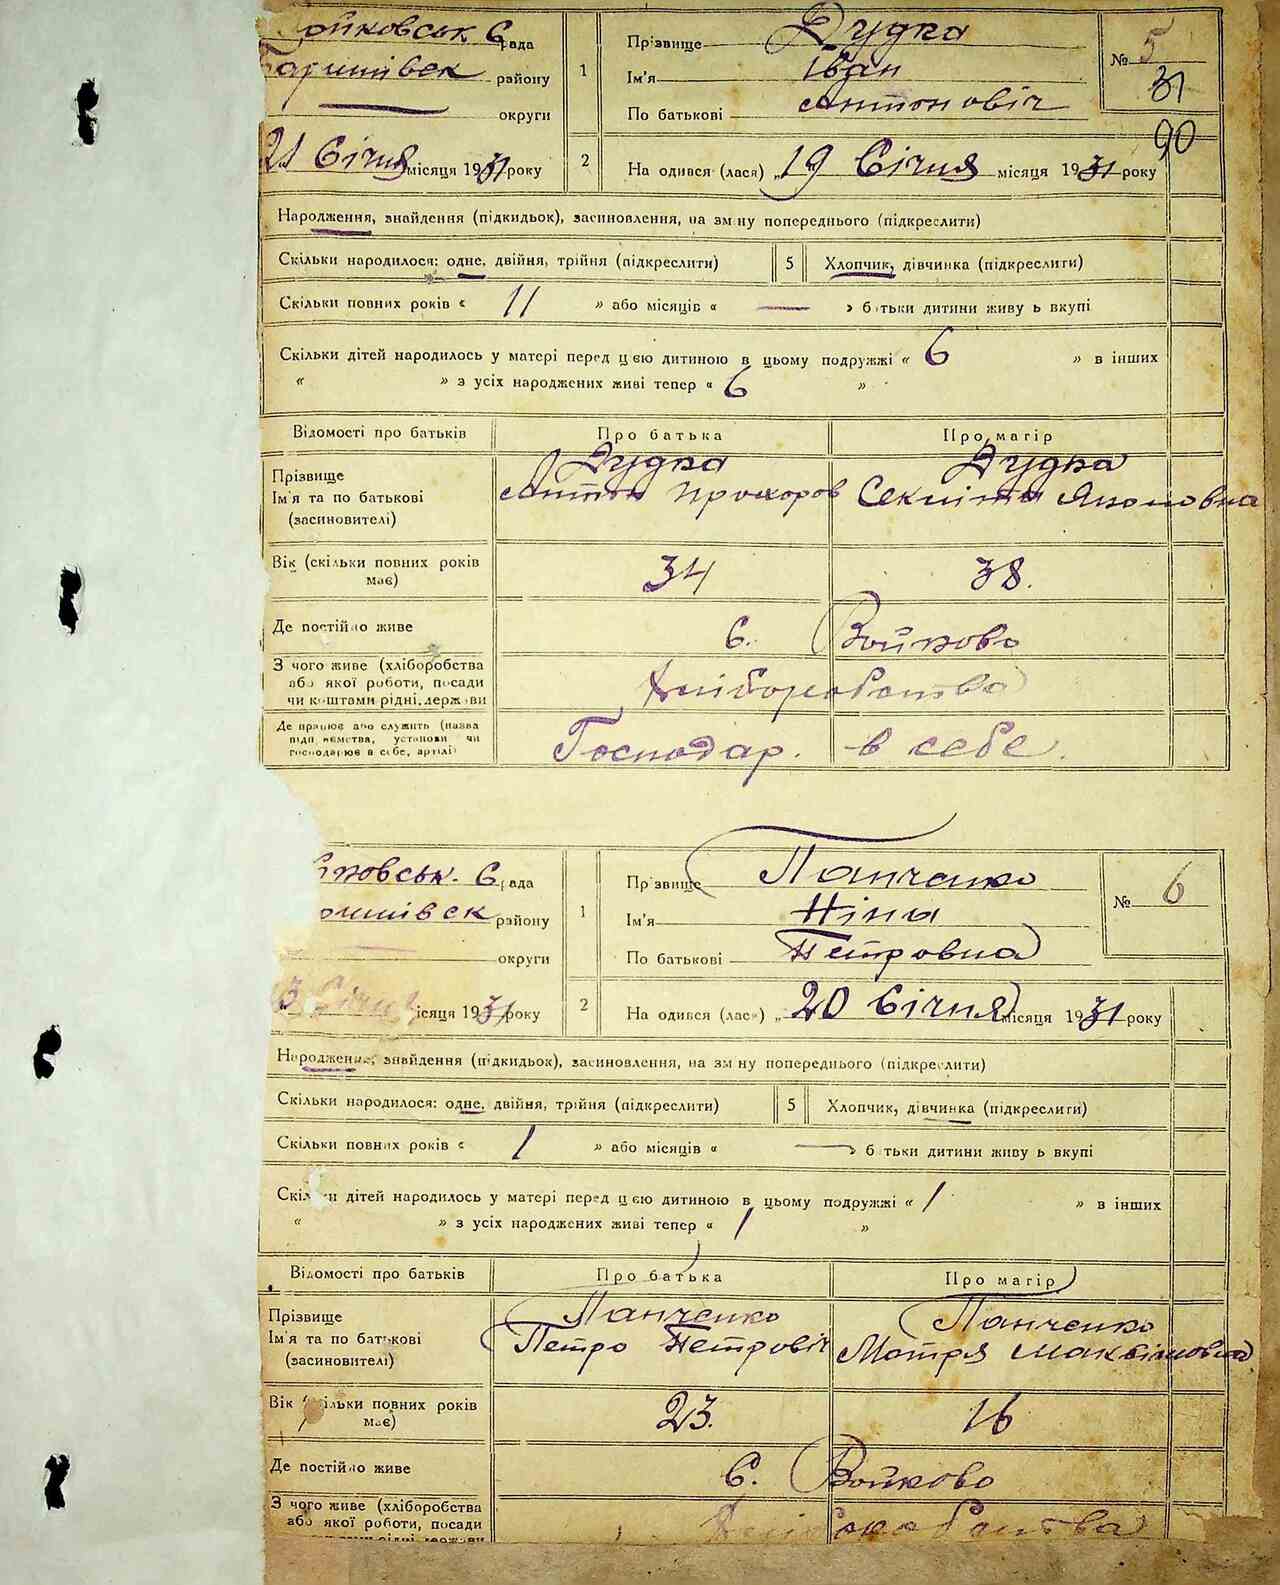 ойковськ. С рада
Баришівск району
округи
21 Січня місяця 1931 року
1
Прізвище Дудка
Ім'я Іван
По батькові Антоновіч
№ 5
31
90
2
На одився (лася) „19 Січня місяця 1931 року
Народження, знайдення (підкидьок), засиновлення, на зм ну попереднього (підкреслити)
Скільки народилося: одне, двійня, трійня (підкреслити) 5 Хлопчик, дівчинка (підкреслити)
Скільки повних років « 11 » або місяців « — » б тьки дитини живу ь вкупі
Скільки дітей народилось у матері перед цією дитиною в цьому подружжі « 6 » в інших
« » з усіх народжених живі тепер « 6 »
Відомості про батьків Про батька Про матір
Прізвище Дудка Дудка
Ім'я та по батькові Антон Прохоров
(засиновителі)
Вік (скільки повних років має) 34 38.
Де постійно живе С. Войково
З чого живе (хліборобства
або якої роботи, посади Хліборобства
чи коштами рідні, держави
Де працює або служить (назва
підприємства, установи чи Господар. в себе.
господарює в себе, артілі)
йковськ. С рада
ришівск району
округи
3 Січня місяця 1931 року
1
Прізвище Панченко
Ім'я Ніна
По батькові Петровна
№ 6
2
На одився (лася) „20 Січня місяця 1931 року
Народження, знайдення (підкидьок), засиновлення, на зм ну попереднього (підкреслити)
Скільки народилося: одне, двійня, трійня (підкреслити) 5 Хлопчик, дівчинка (підкреслити)
Скільки повних років « 1 » або місяців « — » б тьки дитини живу ь вкупі
Скільки дітей народилось у матері перед цією дитиною в цьому подружжі « 1 » в інших
« » з усіх народжених живі тепер « 1 »
Відомості про батьків Про батька Про матір
Прізвище Панченко Панченко
Ім'я та по батькові Петро Петровіч Мотря Максімовна
(засиновителі)
Вік (скільки повних років має) 23. 16
Де постійно живе С. Войково
З чого живе (хліборобства
або якої роботи, посади Хліборобства